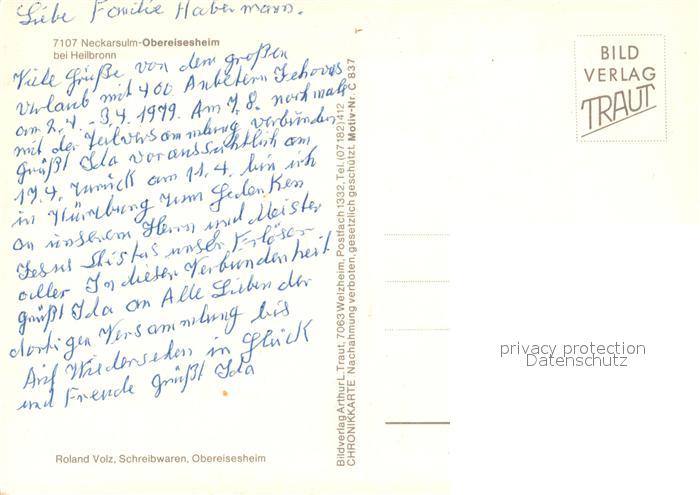 Liebe Familie Habermann.
7107 Neckarsulm-Obereisesheim
bei Heilbronn
Viele Grüße von dem großen
Urlaub mit 400 Anbetern Jehovas
am 2.4. - 3.4. 1979. Am 7.8. nochmals
mit der Teilversammlung verbunden
grüßt Ida voraussichtlich am
17.4. zurück am 11.4. bin ich
in Würzburg zum Gedenken
an unserem Herrn und Meister
Jesus unser Erlöser
aller In dieser Verbundenheit
grüßt Ida an Alle Lieben der
dortigen Versammlung bis
Auf Wiedersehen in Glück
und Freude grüßt Ida
Roland Volz, Schreibwaren, Obereisesheim
Bildverlag Arthur L. Traut, 7063 Welzheim, Postfach 1332, Tel. (07182) 412
CHRONIKKARTE Nachahmung verboten, gesetzlich geschützt. Motiv-Nr. C 837
BILD
VERLAG
TRAUT
privacy protection
Datenschutz